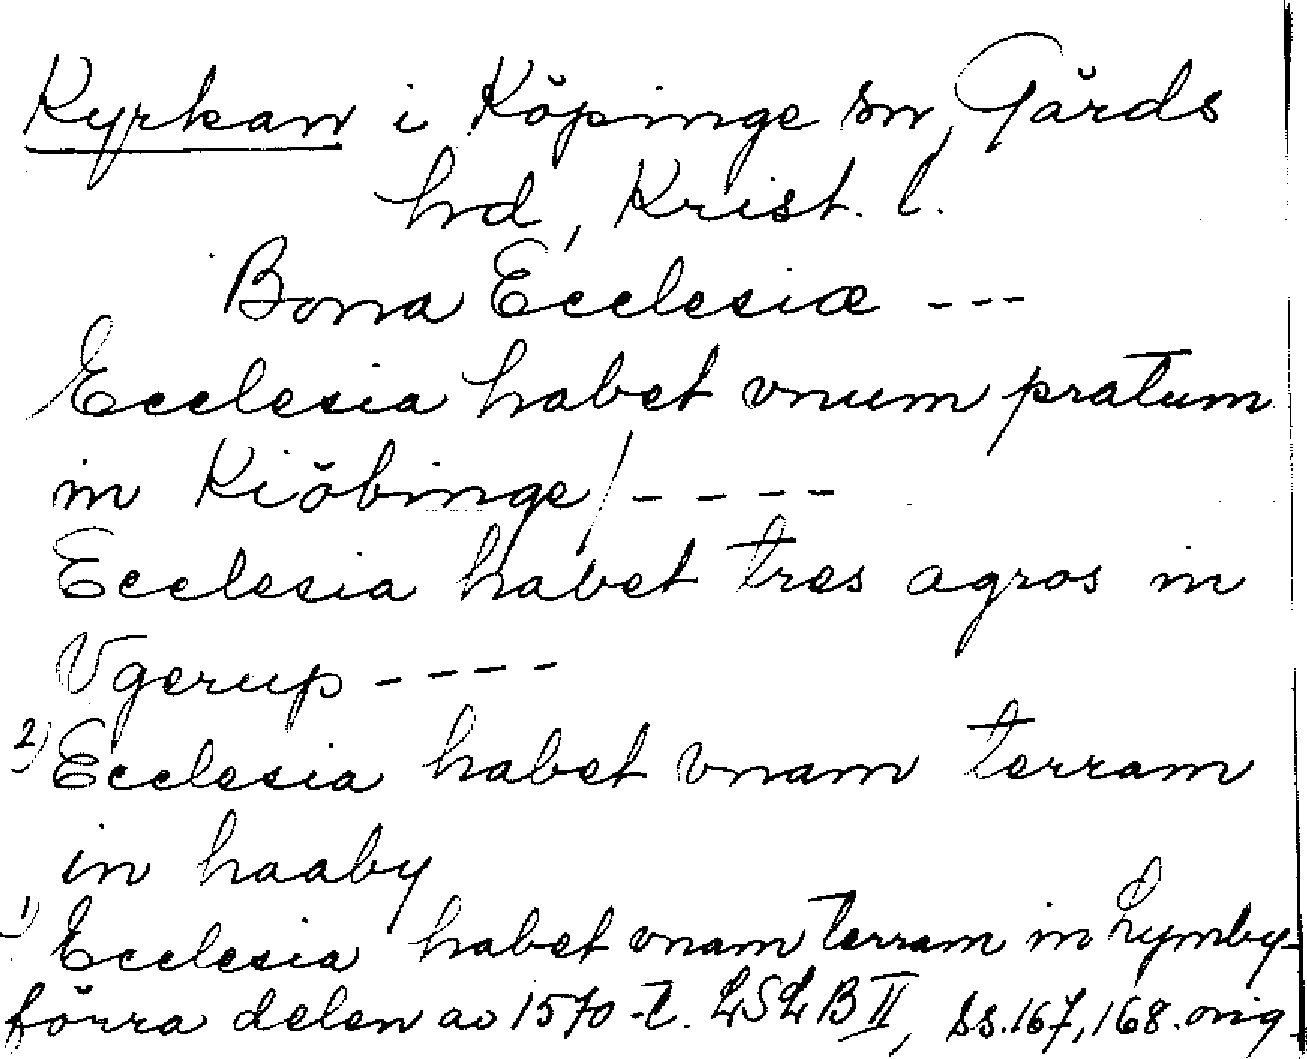 Kyrkan i Köpinge sn, Gärds
hd, Krist. l.
Bona Ecclesiæ ---
Ecclesia habet vnum pratum
in Kiöbinge/----
Ecclesia habet tres agros in
Vgerup----
2) Ecclesia habet vnam terram
in haaby
1) Ecclesia habet vnam terram in Lymby-
förra delen av 1570-t. LSLB II, ss. 167, 168. orig